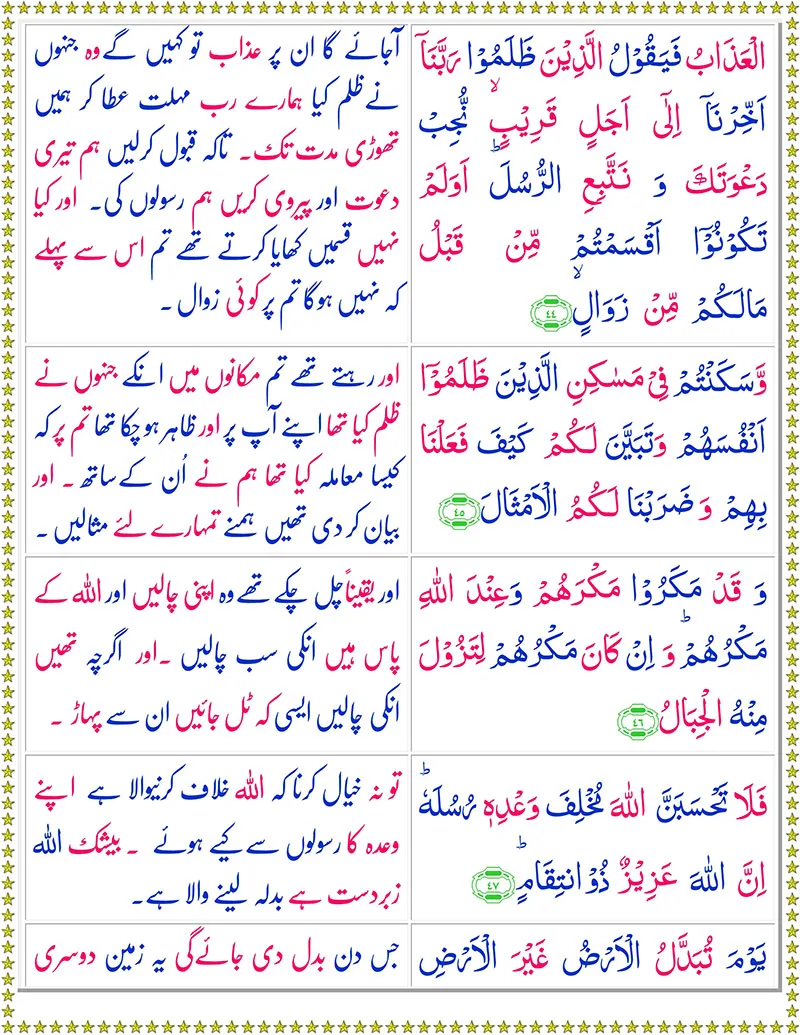 الْعَذَابُ فَيَقُوْلُ الَّذِيْنَ ظَلَمُوْا رَبَّنَاۤ
اَخِّرْنَاۤ اِلٰۤى اَجَلٍ قَرِيْبٍ ۙ نُّجِبْ
دَعْوَتَكَ وَ نَتَّبِعِ الرُّسُلَ ؕ اَوَلَمْ
تَكُوْنُوْۤا اَقْسَمْتُمْ مِّنْ قَبْلُ
مَالَكُمْ مِّنْ زَوَالٍ ۙ ٤٤
آجائے گا ان پر عذاب تو کہیں گے وہ جنہوں
نے ظلم کیا ہمارے رب مہلت عطا کر ہمیں
تھوڑی مدت تک۔ تاکہ قبول کرلیں ہم تیری
دعوت اور پیروی کریں ہم رسولوں کی۔ اور کیا
نہیں قسمیں کھایا کرتے تھے تم اس سے پہلے
کہ نہیں ہوگا تم پر کوئی زوال ۔
وَّسَكَنْتُمْ فِيْ مَسٰكِنِ الَّذِيْنَ ظَلَمُوْۤا
اَنْفُسَهُمْ وَتَبَيَّنَ لَكُمْ كَيْفَ فَعَلْنَا
بِهِمْ وَ ضَرَبْنَا لَكُمُ الْاَمْثَالَ ٤٥
اور رہتے تھے تم مکانوں میں انکے جنہوں نے
ظلم کیا تھا اپنے آپ پر اور ظاہر ہو چکا تھا تم پر کہ
کیسا معاملہ کیا تھا ہم نے اُن کے ساتھ ۔ اور
بیان کر دی تھیں ہمنے تمہارے لئے مثالیں ۔
وَ قَدْ مَكَرُوْا مَكْرَهُمْ وَعِنْدَ اللّٰهِ
مَكْرُهُمْ ؕ وَ اِنْ كَانَ مَكْرُهُمْ لِتَزُوْلَ
مِنْهُ الْجِبَالُ ٤٦
اور یقیناً چل چکے تھے وہ اپنی چالیں اور اللہ کے
پاس ہیں انکی سب چالیں ۔اور اگرچہ تھیں
انکی چالیں ایسی کہ ٹل جائیں ان سے پہاڑ ۔
فَلَا تَحْسَبَنَّ اللّٰهَ مُخْلِفَ وَعْدِهٖ رُسُلَهٗ ؕ
اِنَّ اللّٰهَ عَزِيْزٌ ذُوْ انْتِقَامٍ ؕ ٤٧
تو نہ خیال کرنا کہ اللہ خلاف کرنیوالا ہے اپنے
وعدہ کا رسولوں سے کیے ہوئے ۔ بیشک اللہ
زبردست ہے بدلہ لینے والا ہے۔
يَوْمَ تُبَدَّلُ الْاَرْضُ غَيْرَ الْاَرْضِ
جس دن بدل دی جائے گی یہ زمین دوسری